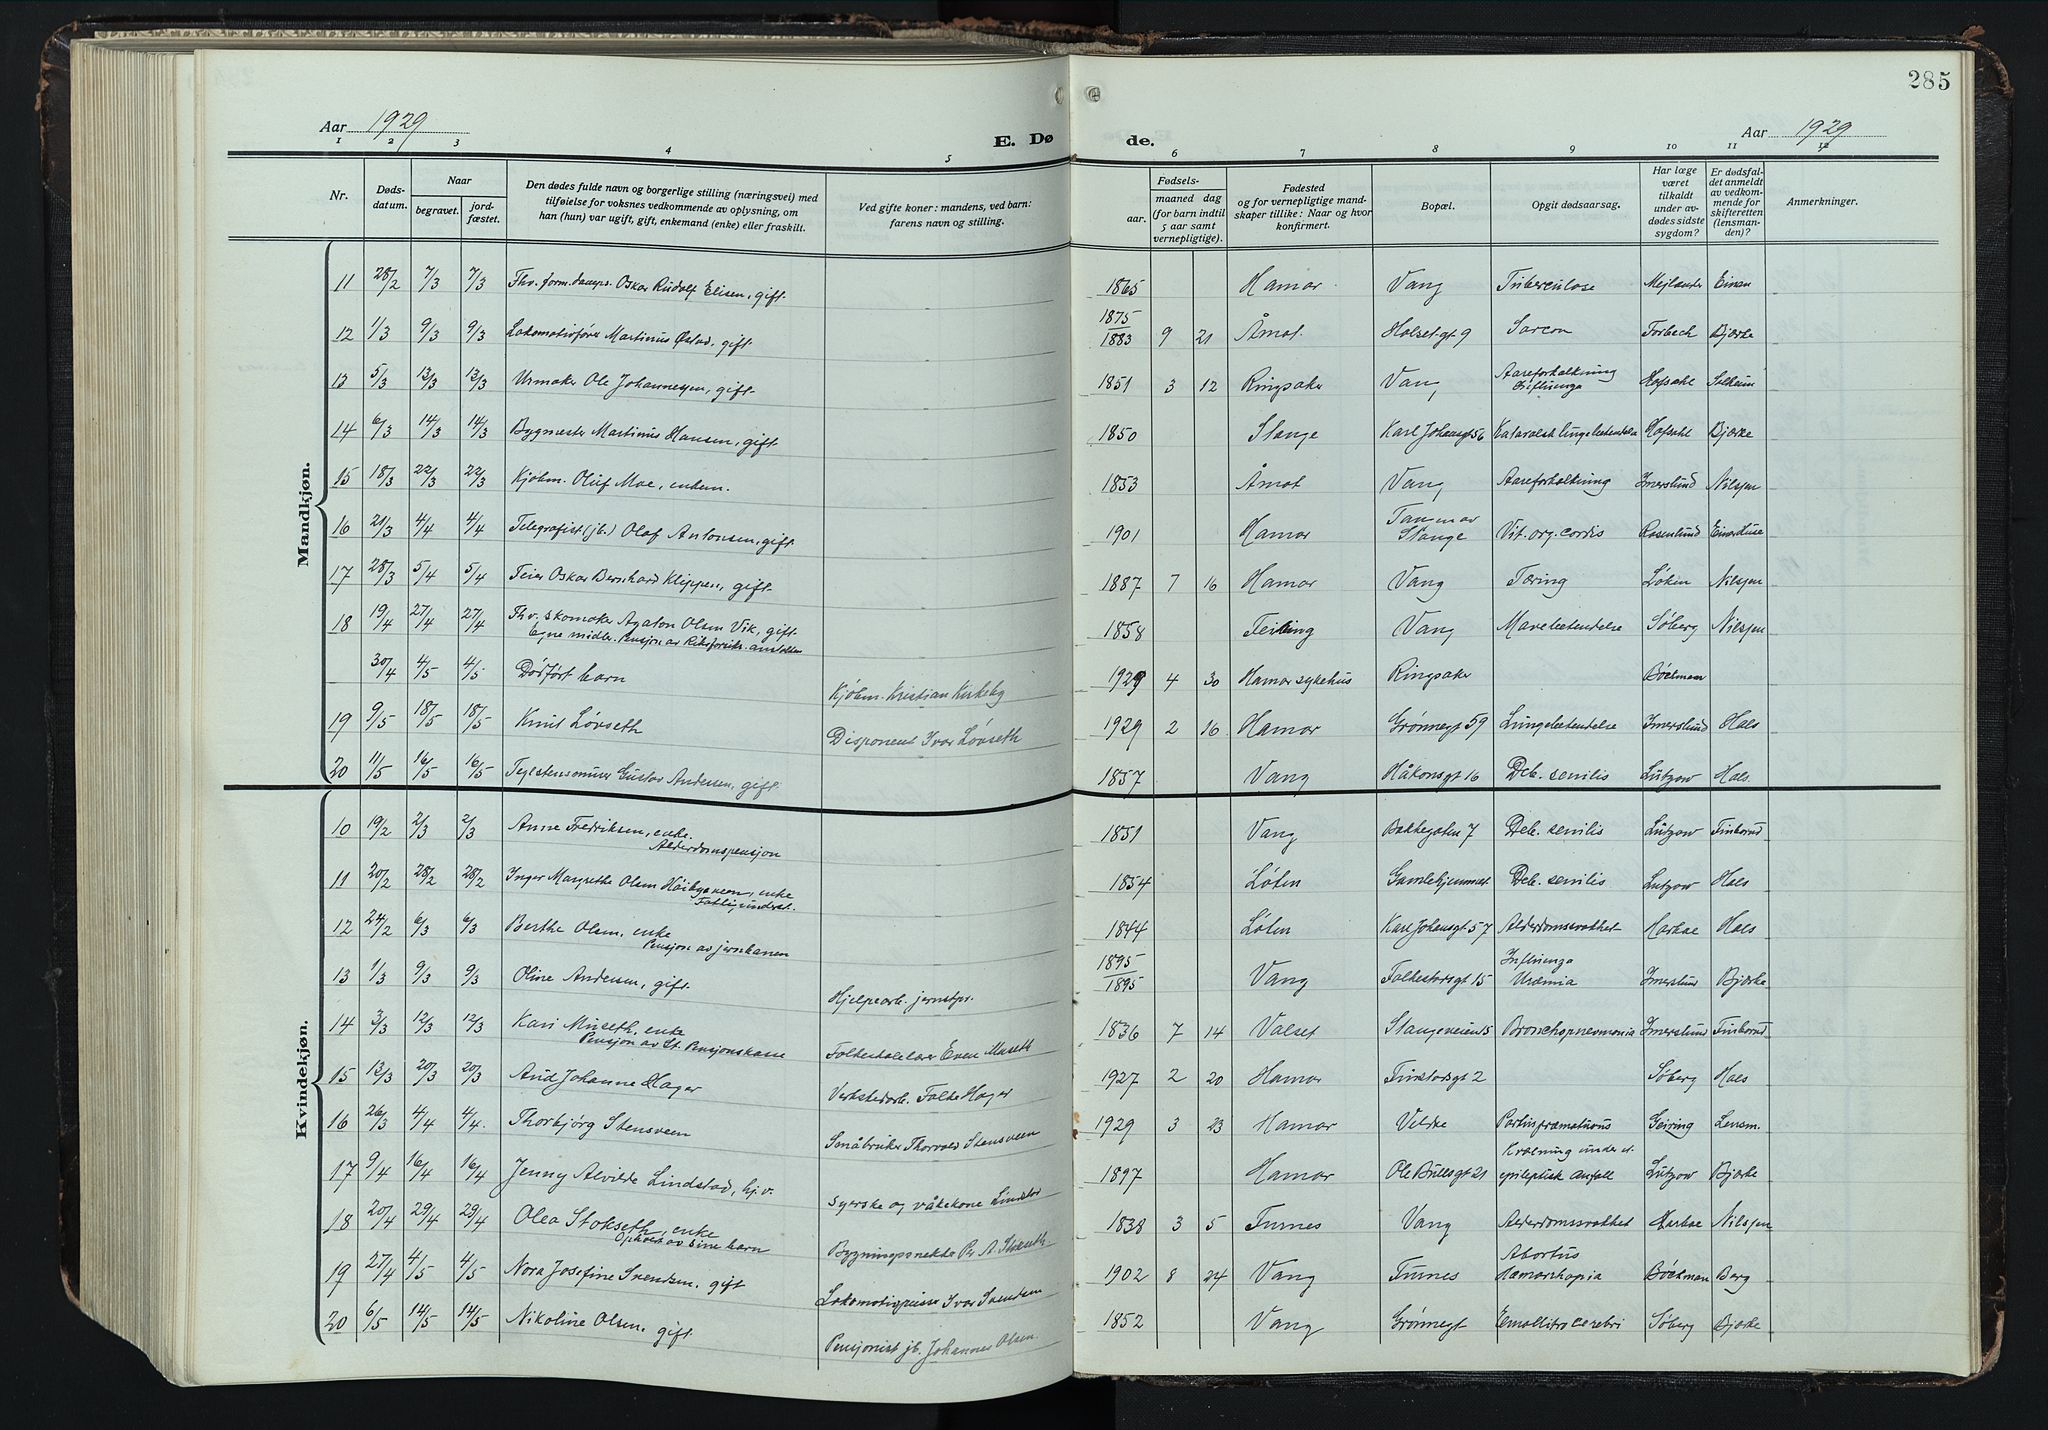 285
Aar 1929
E. Dø
de.
Aar 1929
1 2 3 4 5 6 7 8 9 10 11 12
Nr.
Døds-
datum.
Naar
begravet.
jord-
fæstet.
Den dødes fulde navn og borgerlige stilling (næringsvei) med
tilføielse for voksnes vedkommende av oplysning, om
han (hun) var ugift, gift, enkemand (enke) eller fraskilt.
Ved gifte koner: mandens, ved barn:
farens navn og stilling.
Fødsels-
aar.
maaned dag
(for barn indtil
5 aar samt
vernepligtige).
Fødested
og for vernepligtige mand-
skaper tillike: Naar og hvor
konfirmert.
Bopæl.
Opgit dødsaarsag.
Har læge
været
tilkaldt
under av-
dødes sidste
sygdom?
Er dødsfal-
det anmeldt
av vedkom-
mende for
skifteretten
(lensman-
den)?
Anmerkninger.
Mandkjøn.
11 28/2 7/3 7/3 Thv. form. Oskar Rudolf Elisen, gift. 1865 Hamar Vang Tuberculose Mejlænder Einan
12 1/3 9/3 9/3 Lokomotivfører Martinus Østad, gift 1875/1883 9 21 Åmot Holsetgt 9 Sarcom Torbech Bjørke
13 5/3 13/3 13/3 Urmaker Ole Johannessen, gift 1851 3 12 Ringsaker Vang Aareforkalkning Hofsahl
14 6/3 14/3 14/3 Bygmester Martinus Hansen, gift 1850 Stange Karl Johansgt 56 Kataralsk lungebetendelse Hofsahl Bjørke
15 18/3 22/3 22/3 Kjøbm. Oluf Moe, enkem. 1853 Åmot Vang Aareforkalkning Imerslund Nilsen
16 21/3 4/4 4/4 Telegrafist (jb.) Olaf Antonsen, gift 1901 Hamar Stange Vit. org. cordis Rosenlund
17 28/3 5/4 5/4 Feier Oskar Bernhard Klippen, gift 1887 7 16 Hamar Vang Tæring Løken Nilsen
18 19/4 27/4 27/4 Thv. skomaker Agaton Olsen Vik, gift. 1858 Feiring Vang Mavebetendelse Søberg Nilsen
Egne midler. Pensjon av Riksforsikr. anstalten
30/4 4/5 4/5 Dødført barn Kjøbm. Kristian Kirkeby 1929 4 30 Hamar sykehus Ringsaker Böckman
19 9/5 18/5 18/5 Knut Løvseth Disponent Ivar Løvseth 1929 2 16 Hamar Grønnegt 59 Lungebetendelse Imerslund Hals
20 11/5 16/5 16/5 Teglstensmurer Gustav Andersen, gift 1857 Vang Håkonsgt 16 Deb. senilis Lützow Hals
Kvindekjøn.
10 19/2 2/3 2/3 Anne Fredriksen, enke. 1851 Vang Bakkegaten 7 Deb. senilis Lützow Finborud
Alderdomspensjon
11 20/2 28/2 28/2 Inger Margrethe Olsen Høibyeveen, enke 1854 Løten Gamlehjemmet Deb. senilis Lutzow Hals
Fattigunderst.
12 24/2 6/3 6/3 Berthe Olsen, enke 1844 Løten Karl Johansgt 57 Alderdomssvakhet Harboe Hals
Pensjon av jernbanen
13 1/3 9/3 9/3 Oline Andersen, gift. Hjelpearb. jernstøp. 1895/1895 Vang Folkestadsgt 15 Influenza Uræmia Imerslund Bjørke
14 3/3 12/3 12/3 Kari Museth, enke Folkeskolelærer Even Museth 1836 7 14 Valset Stangeveien 5 Bronchopneumonia Imerslund Finborud
Pensjon av St. Pensjonskasse
15 13/3 20/3 20/3 Aud Johanne Hager Verkstedarb. Falke Hager 1927 2 20 Hamar Finstadsgt 2 Søberg Hals
16 26/3 4/4 4/4 Thorbjørg Stensveen Småbruker Thorvald Stensveen 1929 3 23 Hamar Veldre Partus præmaturus Geiring Lensm.
17 9/4 16/4 16/4 Jenny Alvilde Lindstad, hj.v. Syerske og våkekone Lindstad 1897 Hamar Ole Bullsgt 21 Kvælning under et epileptisk anfall Lützow Bjørke
18 20/4 29/4 29/4 Olea Stokseth, enke 1838 3 5 Furnes Vang Alderdomssvakhet Harboe Nilsen
Ophold av sine barn
19 27/4 4/5 4/5 Nora Josefine Svendsen, gift Lokomotivpusser Ivar Svendsen 1902 8 24 Vang Furnes Abortus Hæmorrhagia Böckman Berg
20 6/5 14/5 14/5 Nikoline Olsen, gift Pensjonist jb. Johannes Olsen. 1852 Vang Grønnegt Emollitio cerebri Søberg Bjørke